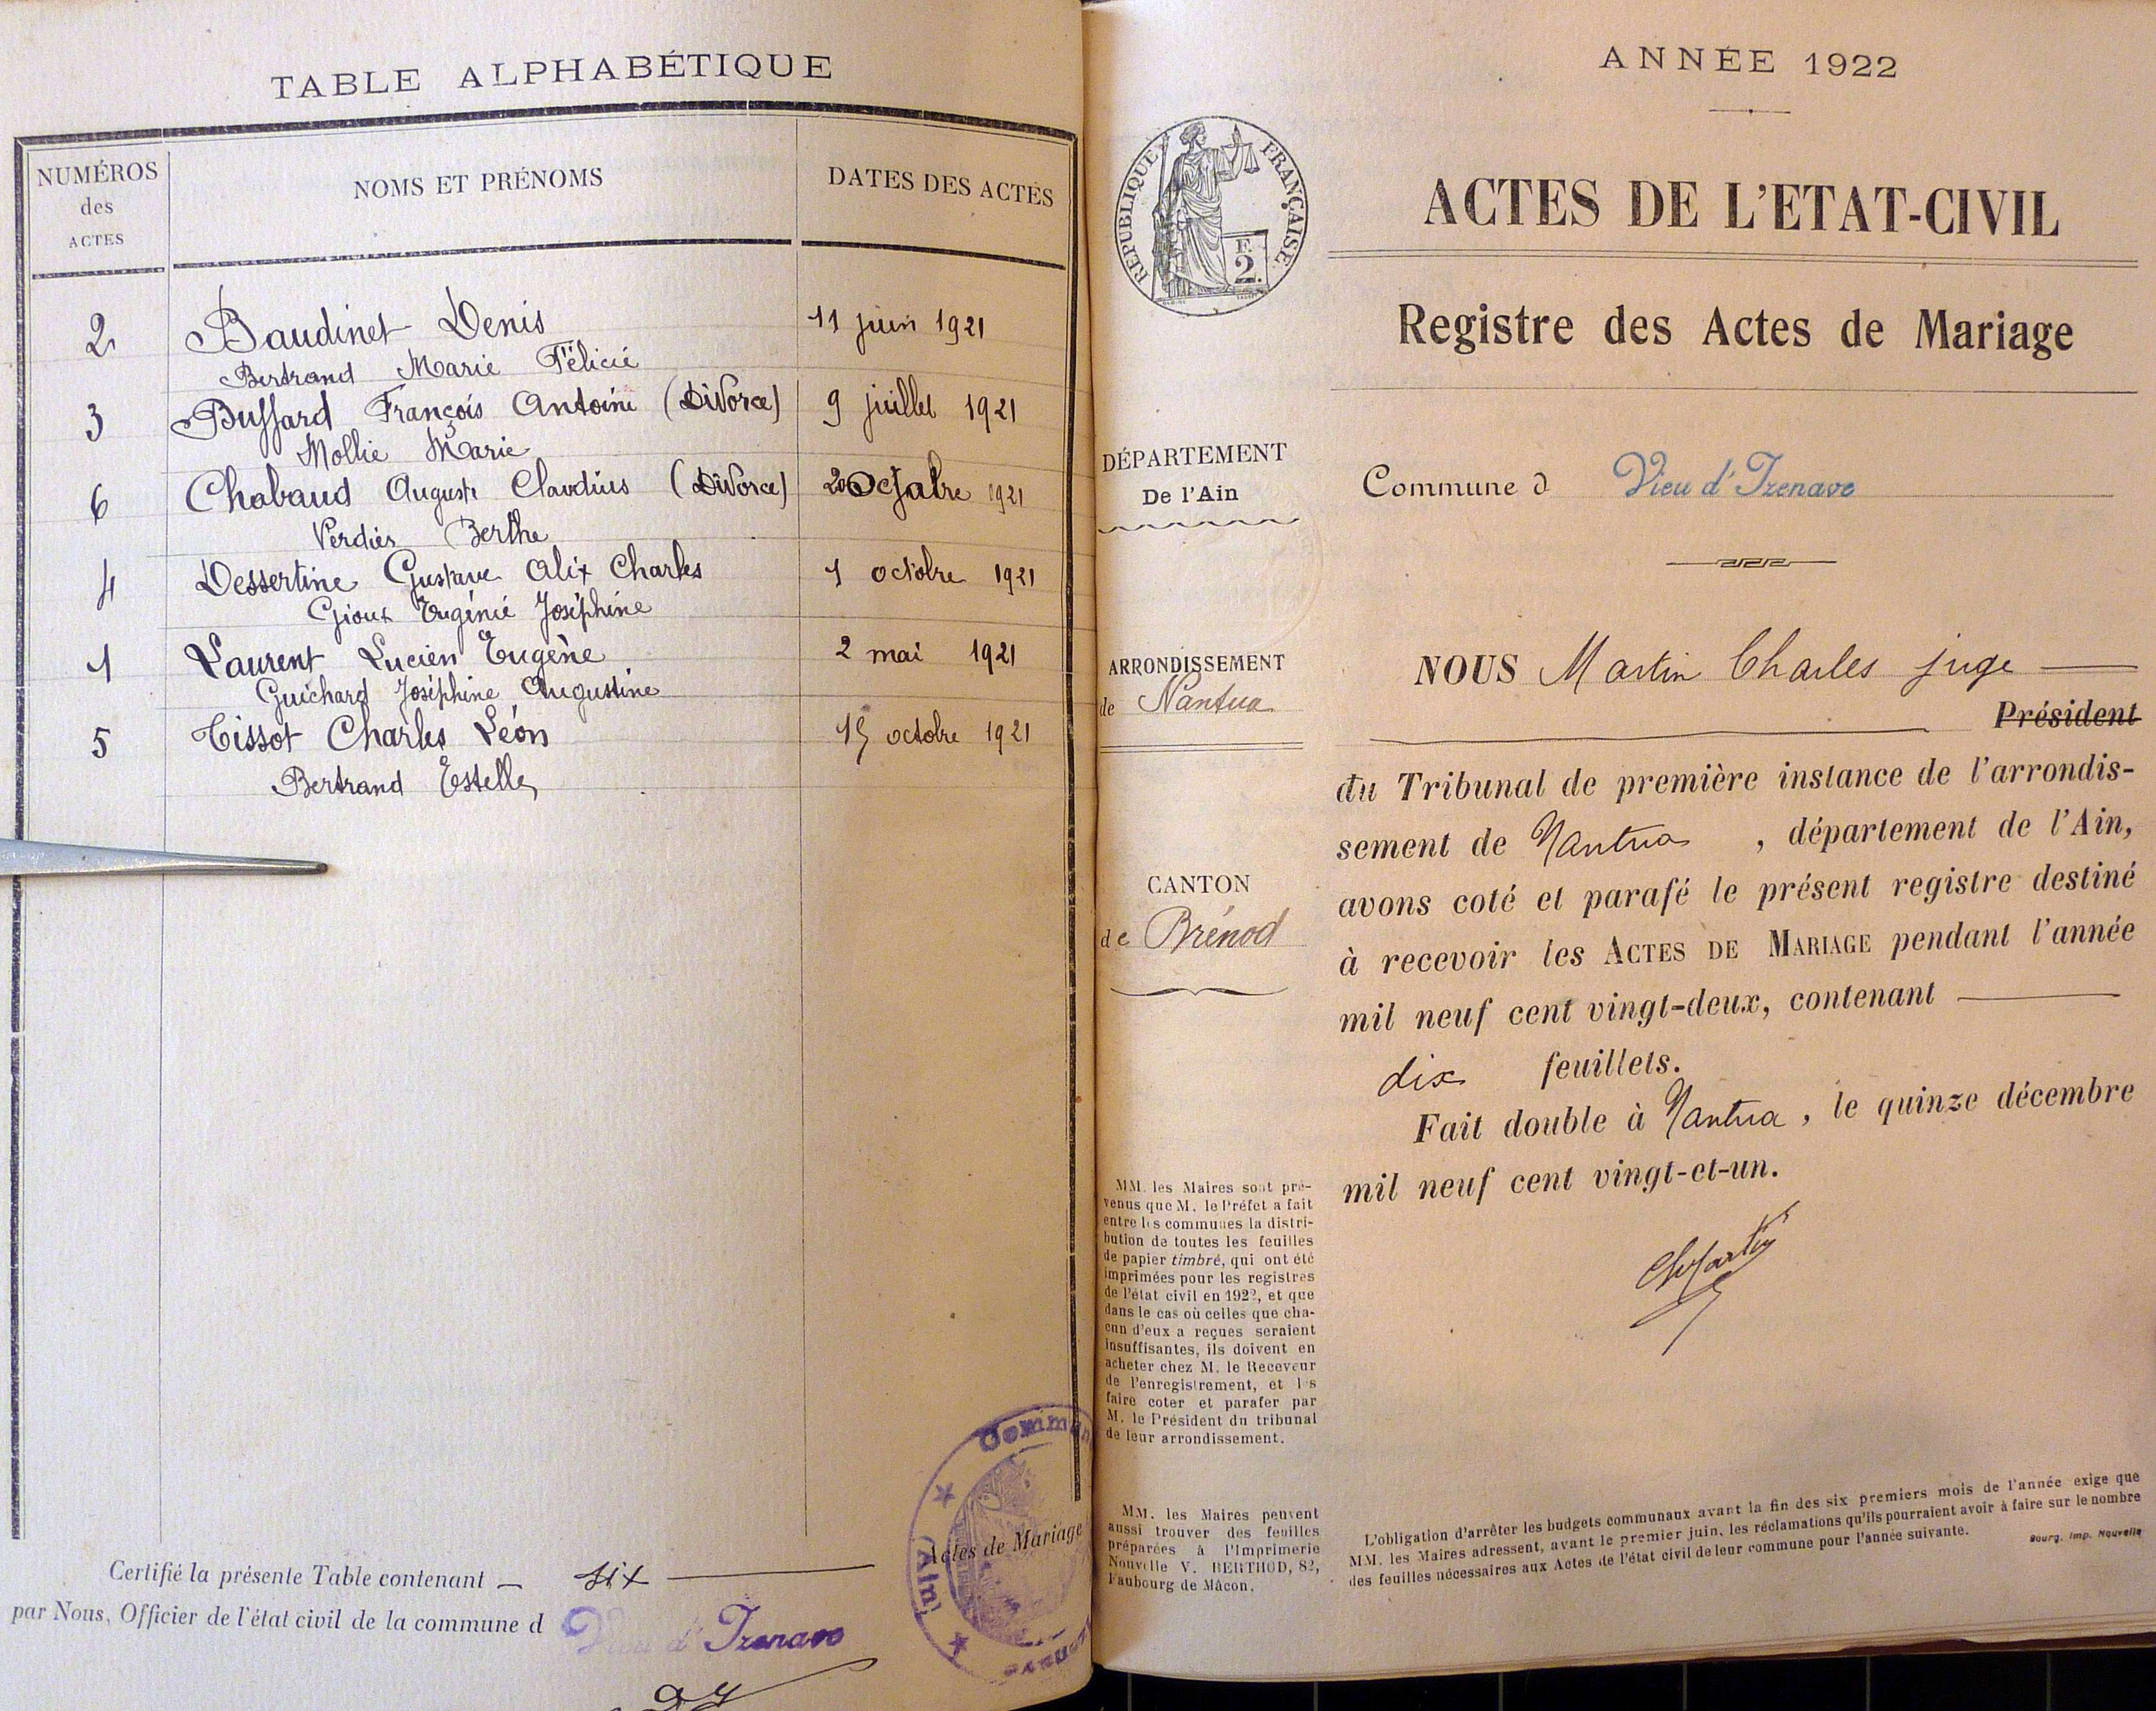 TABLE ALPHABÉTIQUE
NUMÉROS
des
ACTES
NOMS ET PRÉNOMS
DATES DES ACTES
2 Baudinet Denis 11 juin 1921
Bertrand Marie Félicie
3 Buffard François Antoine (Divorce) 9 juillet 1921
Mollie Marie
6 Chabaud Auguste Claudius (Divorce) 20 Octobre 1921
Verdier Berthe
4 Dessertine Gustave Alix Charles 1 octobre 1921
Gioux Eugénie Joséphine
1 Laurent Lucien Eugène 2 mai 1921
Guichard Joséphine Augustine
5 Tissot Charles Léon 15 octobre 1921
Bertrand Estelle
Certifié la présente Table contenant six Actes de Mariage
par Nous, Officier de l'état civil de la commune d Vieu d'Izenave
Commun
(Ain)
ANNÉE 1922
RÉPUBLIQUE FRANÇAISE.
F.
2.
ACTES DE L'ETAT-CIVIL
Registre des Actes de Mariage
DÉPARTEMENT
De l'Ain
Commune d Vieu d'Izenave
ARRONDISSEMENT
de Nantua
CANTON
de Brénod
NOUS Martin Charles juge
Président
du Tribunal de première instance de l'arrondis-
sement de Nantua, département de l'Ain,
avons coté et parafé le présent registre destiné
à recevoir les ACTES DE MARIAGE pendant l'année
mil neuf cent vingt-deux, contenant
dix feuillets.
Fait double à Nantua, le quinze décembre
mil neuf cent vingt-et-un.
ChMartin
MM. les Maires sont pré-
venus que M. le Préfet a fait
entre les communes la distri-
bution de toutes les feuilles
de papier timbré, qui ont été
imprimées pour les registres
de l'état civil en 1922, et que
dans le cas où celles que cha-
cun d'eux a reçues seraient
insuffisantes, ils doivent en
acheter chez M. le Receveur
de l'enregistrement, et les
faire coter et parafer par
M. le Président du tribunal
de leur arrondissement.
MM. les Maires peuvent
aussi trouver des feuilles
préparées à l'Imprimerie
Nouvelle V. BERTHOD, 82,
Faubourg de Mâcon.
L'obligation d'arrêter les budgets communaux avant la fin des six premiers mois de l'année exige que
MM. les Maires adressent, avant le premier juin, les réclamations qu'ils pourraient avoir à faire sur le nombre
des feuilles nécessaires aux Actes de l'état civil de leur commune pour l'année suivante.
Bourg, Imp. Nouvelle